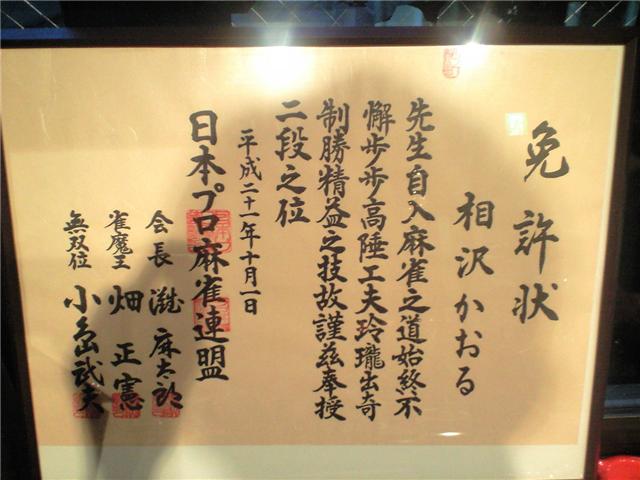 免許状
相沢かおる
先生自入麻雀之道始終不
懈歩歩高陞工夫玲瓏出奇
制勝精益之技故謹茲奉授
二段之位
平成二十一年十月一日
日本プロ麻雀連盟
会長 灘麻太郎
雀魔王 畑正憲
無双位 小島武夫